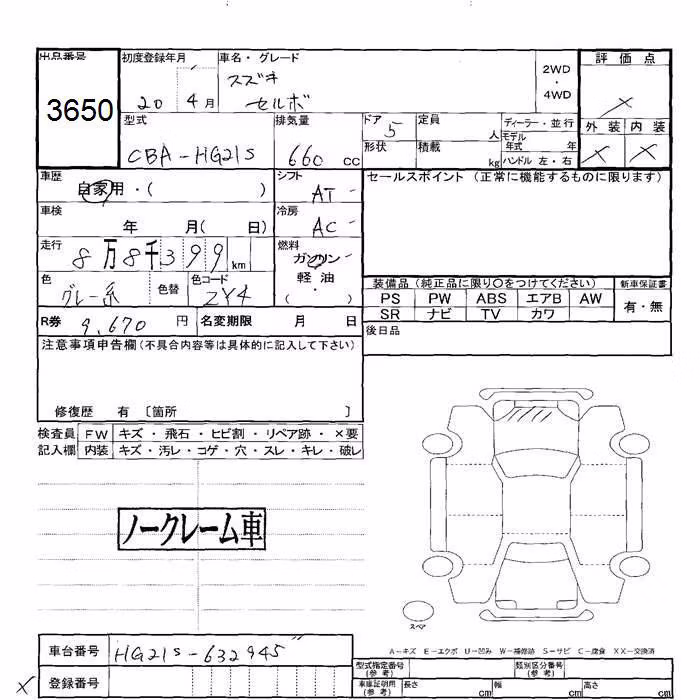 出品番号 3650
初度登録年月 20 4月
車名・グレード スズキ セルボ
2WD ・ 4WD
評価点 ×
外装 × 内装 ×
型式 CBA-HG21S
排気量 660 cc
ドア 5 形状
定員 人 積載 kg
ディーラー・並行
モデル年式 年
ハンドル 左・右
車歴 自家用・( )
シフト AT
セールスポイント (正常に機能するものに限ります)
車検 年 月( 日)
冷房 AC
走行 8万8千399 km
燃料 ガソリン 軽油 ・( )
色 グレー系 色替 色コード ZY4
装備品 (純正品に限り○をつけてください) 新車保証書
PS PW ABS エアB AW 有・無
SR ナビ TV カワ
R券 9,670 円 名変期限 月 日
後日品
注意事項申告欄(不具合内容等は具体的に記入して下さい)
修復歴 有 〔箇所 〕
検査員 FW キズ・飛石・ヒビ割・リペア跡・×要
記入欄 内装 キズ・汚レ・コゲ・穴・スレ・キレ・破レ
ノークレーム車
スペア
A-キズ E-エクボ U-凹み W-補修跡 S-サビ C-腐食 XX-交換済
車台番号 HG21S-632945
× 登録番号
型式指定番号(参考) 類別区分番号(参考)
車庫証明用(参考) 長さ cm 幅 cm 高さ cm